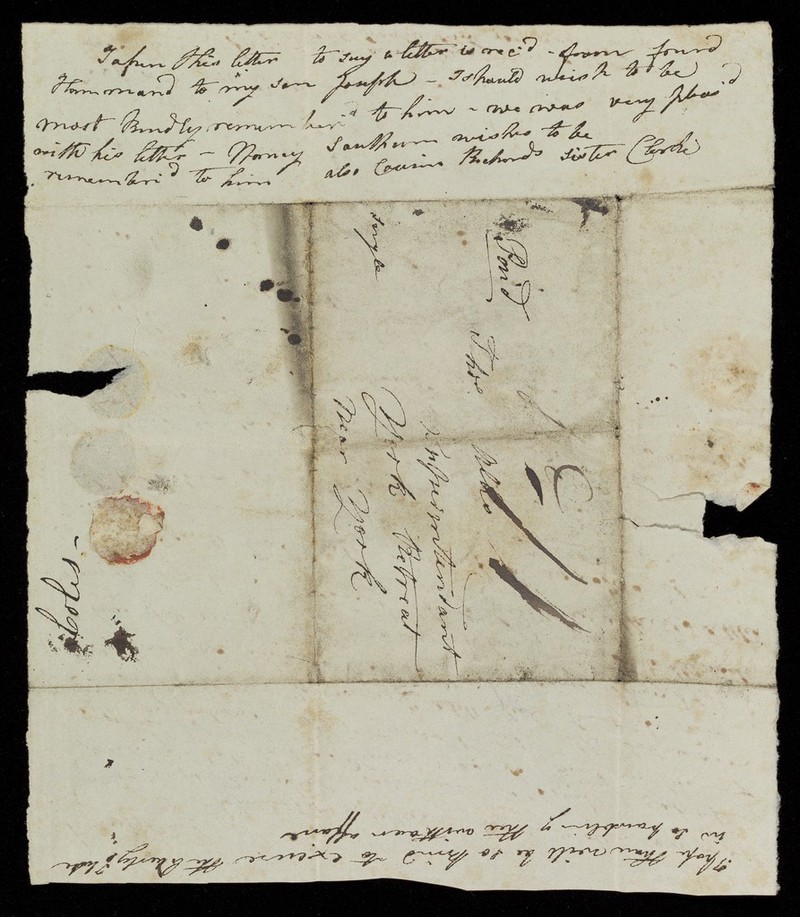 I open this letter to say a letter is rec'd - from
Hammond to my son Joseph - I should wish to be
most kindly remember'd to him - we was very pleas'd
with his letter - Nancy wishes to be
remember'd to him also Cousin Richards sister Clarke
Paid
Thos
Superintendant
York Retreat
Near York
I hope thou will be so kind to excuse the liberty I take
in so troubling thee with our affairs